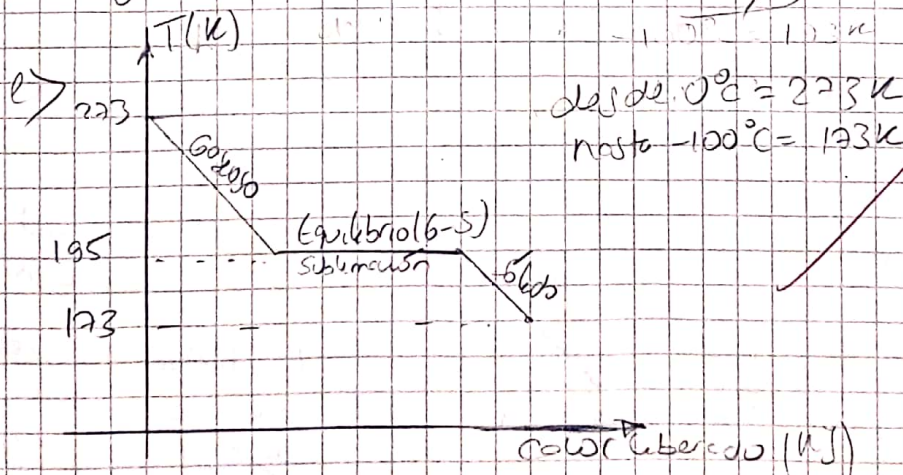 T(K)
e>
273
Gaseoso
desde 0°C = 273K
hasta -100°C = 173K
Equilibrio (G-S)
195
Sublimación
Sólido
173
Calor liberado (KJ)